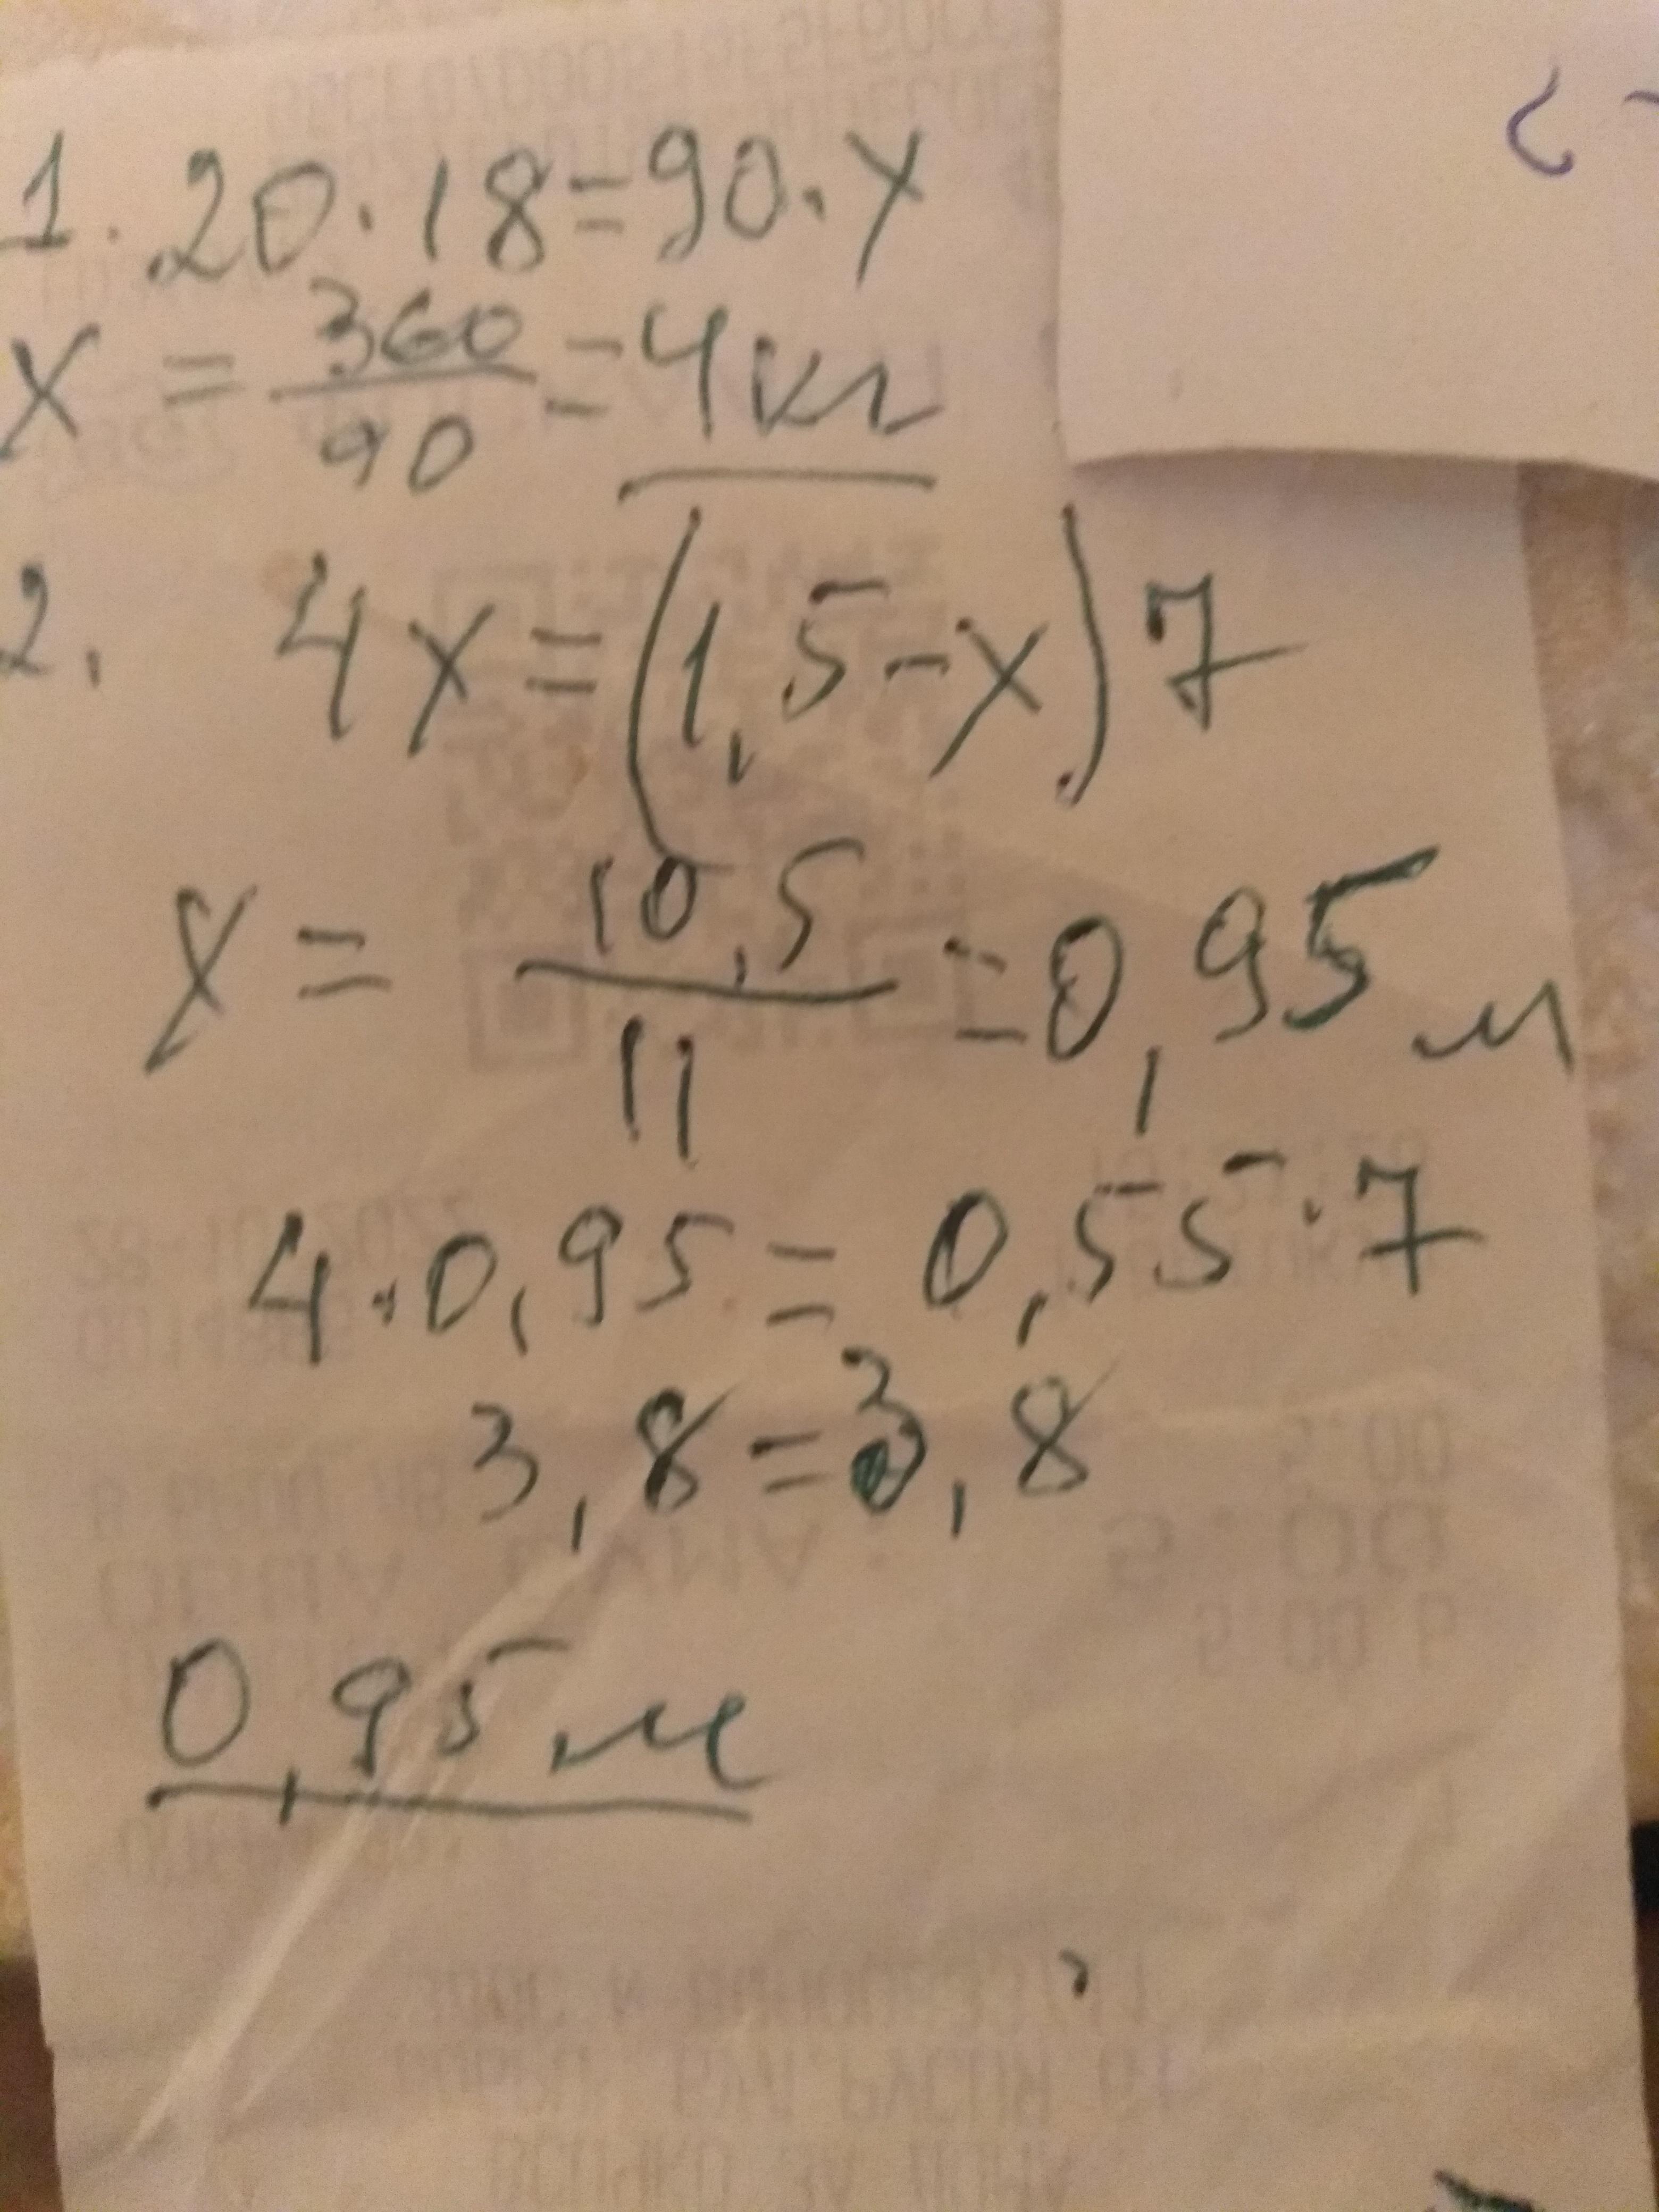 1. 20·18=90·x
x = 360/90 = 4 кг
2. 4x=(1,5-x)7
x = 10,5/11 = 0,95 м
4·0,95 = 0,55·7
3,8=3,8
0,95 м